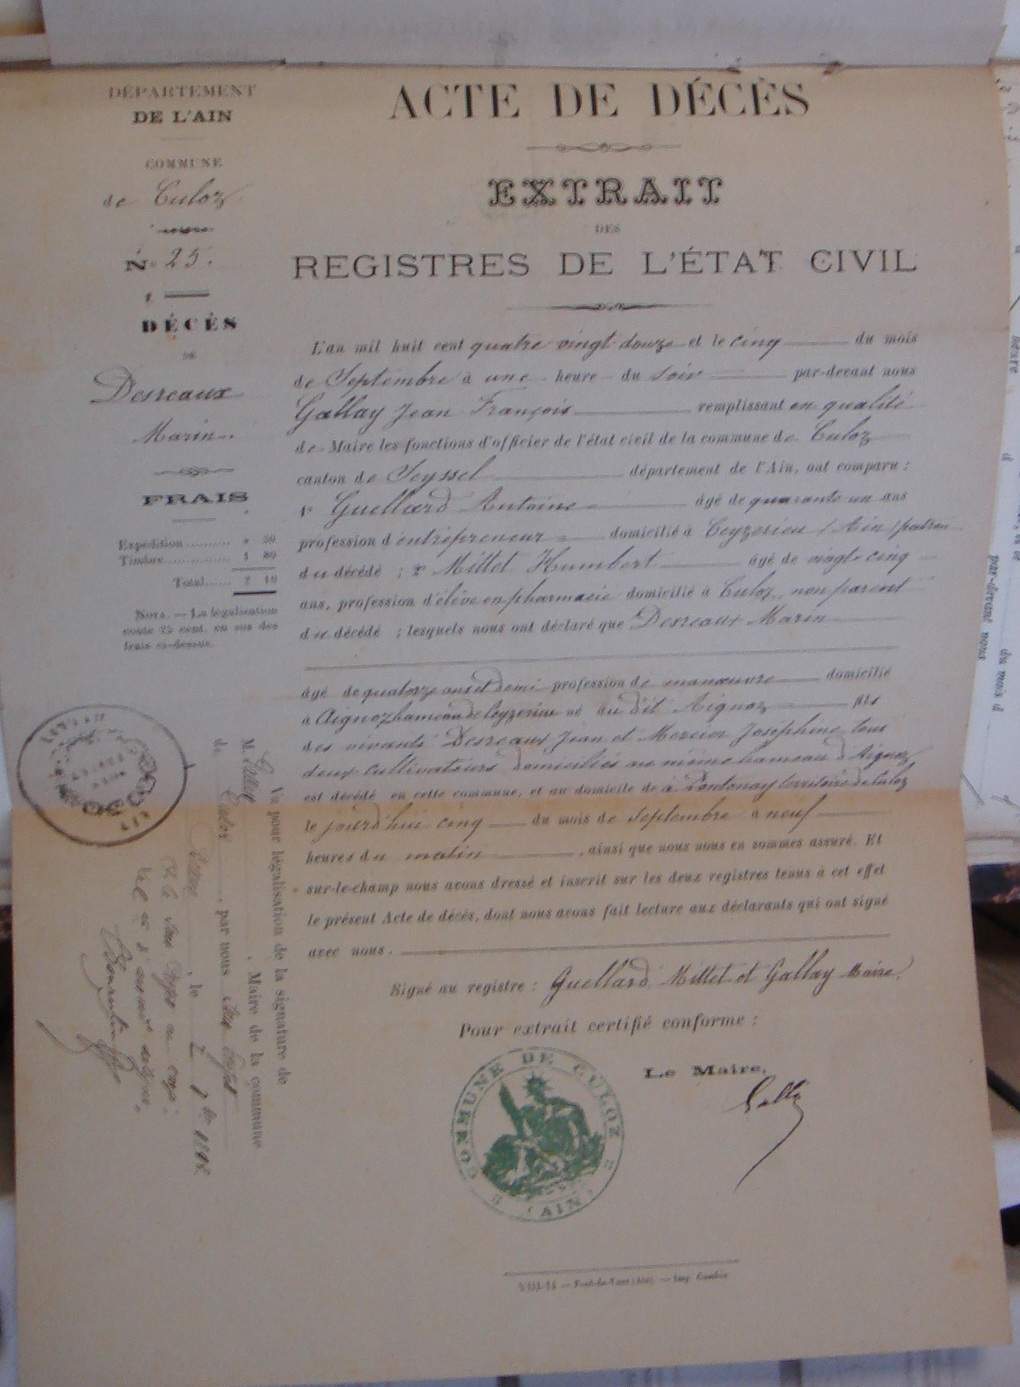 DÉPARTEMENT
DE L'AIN
COMMUNE
de Culoz
N° 25.
DÉCÈS
DE
Desreaux
Marin.
FRAIS
Expédition ......... » 30
Timbre ............ 1 80
Total ...... 2 10
NOTA. — La légalisation
coute 25 cent. en sus des
frais ci-dessus.
ACTE DE DÉCÈS
EXTRAIT
DES
REGISTRES DE L'ÉTAT CIVIL
L'an mil huit cent quatre vingt douze et le cinq du mois
de Septembre à une heure du soir par-devant nous
Gallay Jean François remplissant en qualité
de Maire les fonctions d'officier de l'état civil de la commune de Culoz
canton de Seyssel département de l'Ain, ont comparu :
1° Guellard Antoine âgé de quarante un ans
profession d'entrepreneur domicilié à Ceyzerieu (Ain) patron
du décédé ; 2° Millet Humbert âgé de vingt-cinq
ans, profession d'élève en pharmacie domicilié à Culoz, non parent
du décédé ; lesquels nous ont déclaré que Desreaux Marin
âgé de quatorze ans et demi profession de manœuvre domicilié
à Aignoz hameau de Ceyzerieu né au dit Aignoz fils
des vivants Desreaux Jean et Mercier Joséphine tous
deux cultivateurs domiciliés au même hameau d'Aignoz
est décédé en cette commune, et au domicile de à Pontonay territoire de Culoz
le jourd'hui cinq du mois de septembre à neuf
heures du matin , ainsi que nous nous en sommes assuré. Et
sur-le-champ nous avons dressé et inscrit sur les deux registres tenus à cet effet
le présent Acte de décès, dont nous avons fait lecture aux déclarants qui ont signé
avec nous.
Signé au registre : Guellard Millet et Gallay Maire.
Pour extrait certifié conforme :
Le Maire,
COMMUNE DE CULOZ
(AIN)
Vu pour légalisation de la signature de
M. , Maire de la commune
de Culoz , par nous
, le